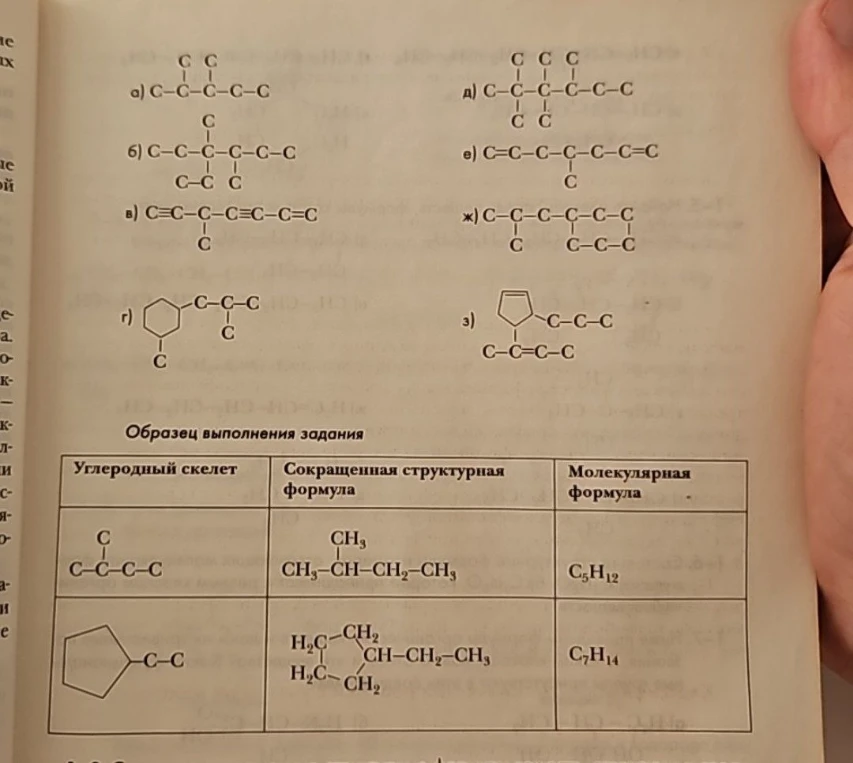 C C
C C C
а) C–C–C–C–C
д) C–C–C–C–C–C
C
C C
б) C–C–C–C–C–C
е) C=C–C–C–C–C=C
C–C C
C
в) C≡C–C–C≡C–C=C
ж) C–C–C–C–C–C
C
C C–C–C
г) C–C–C
C
C
з) C–C–C
C–C=C–C
Образец выполнения задания
Углеродный скелет
Сокращенная структурная формула
Молекулярная формула
C
C–C–C–C
CH₃
CH₃–CH–CH₂–CH₃
C₅H₁₂
C–C
H₂C–CH₂
CH–CH₂–CH₃
H₂C–CH₂
C₇H₁₄